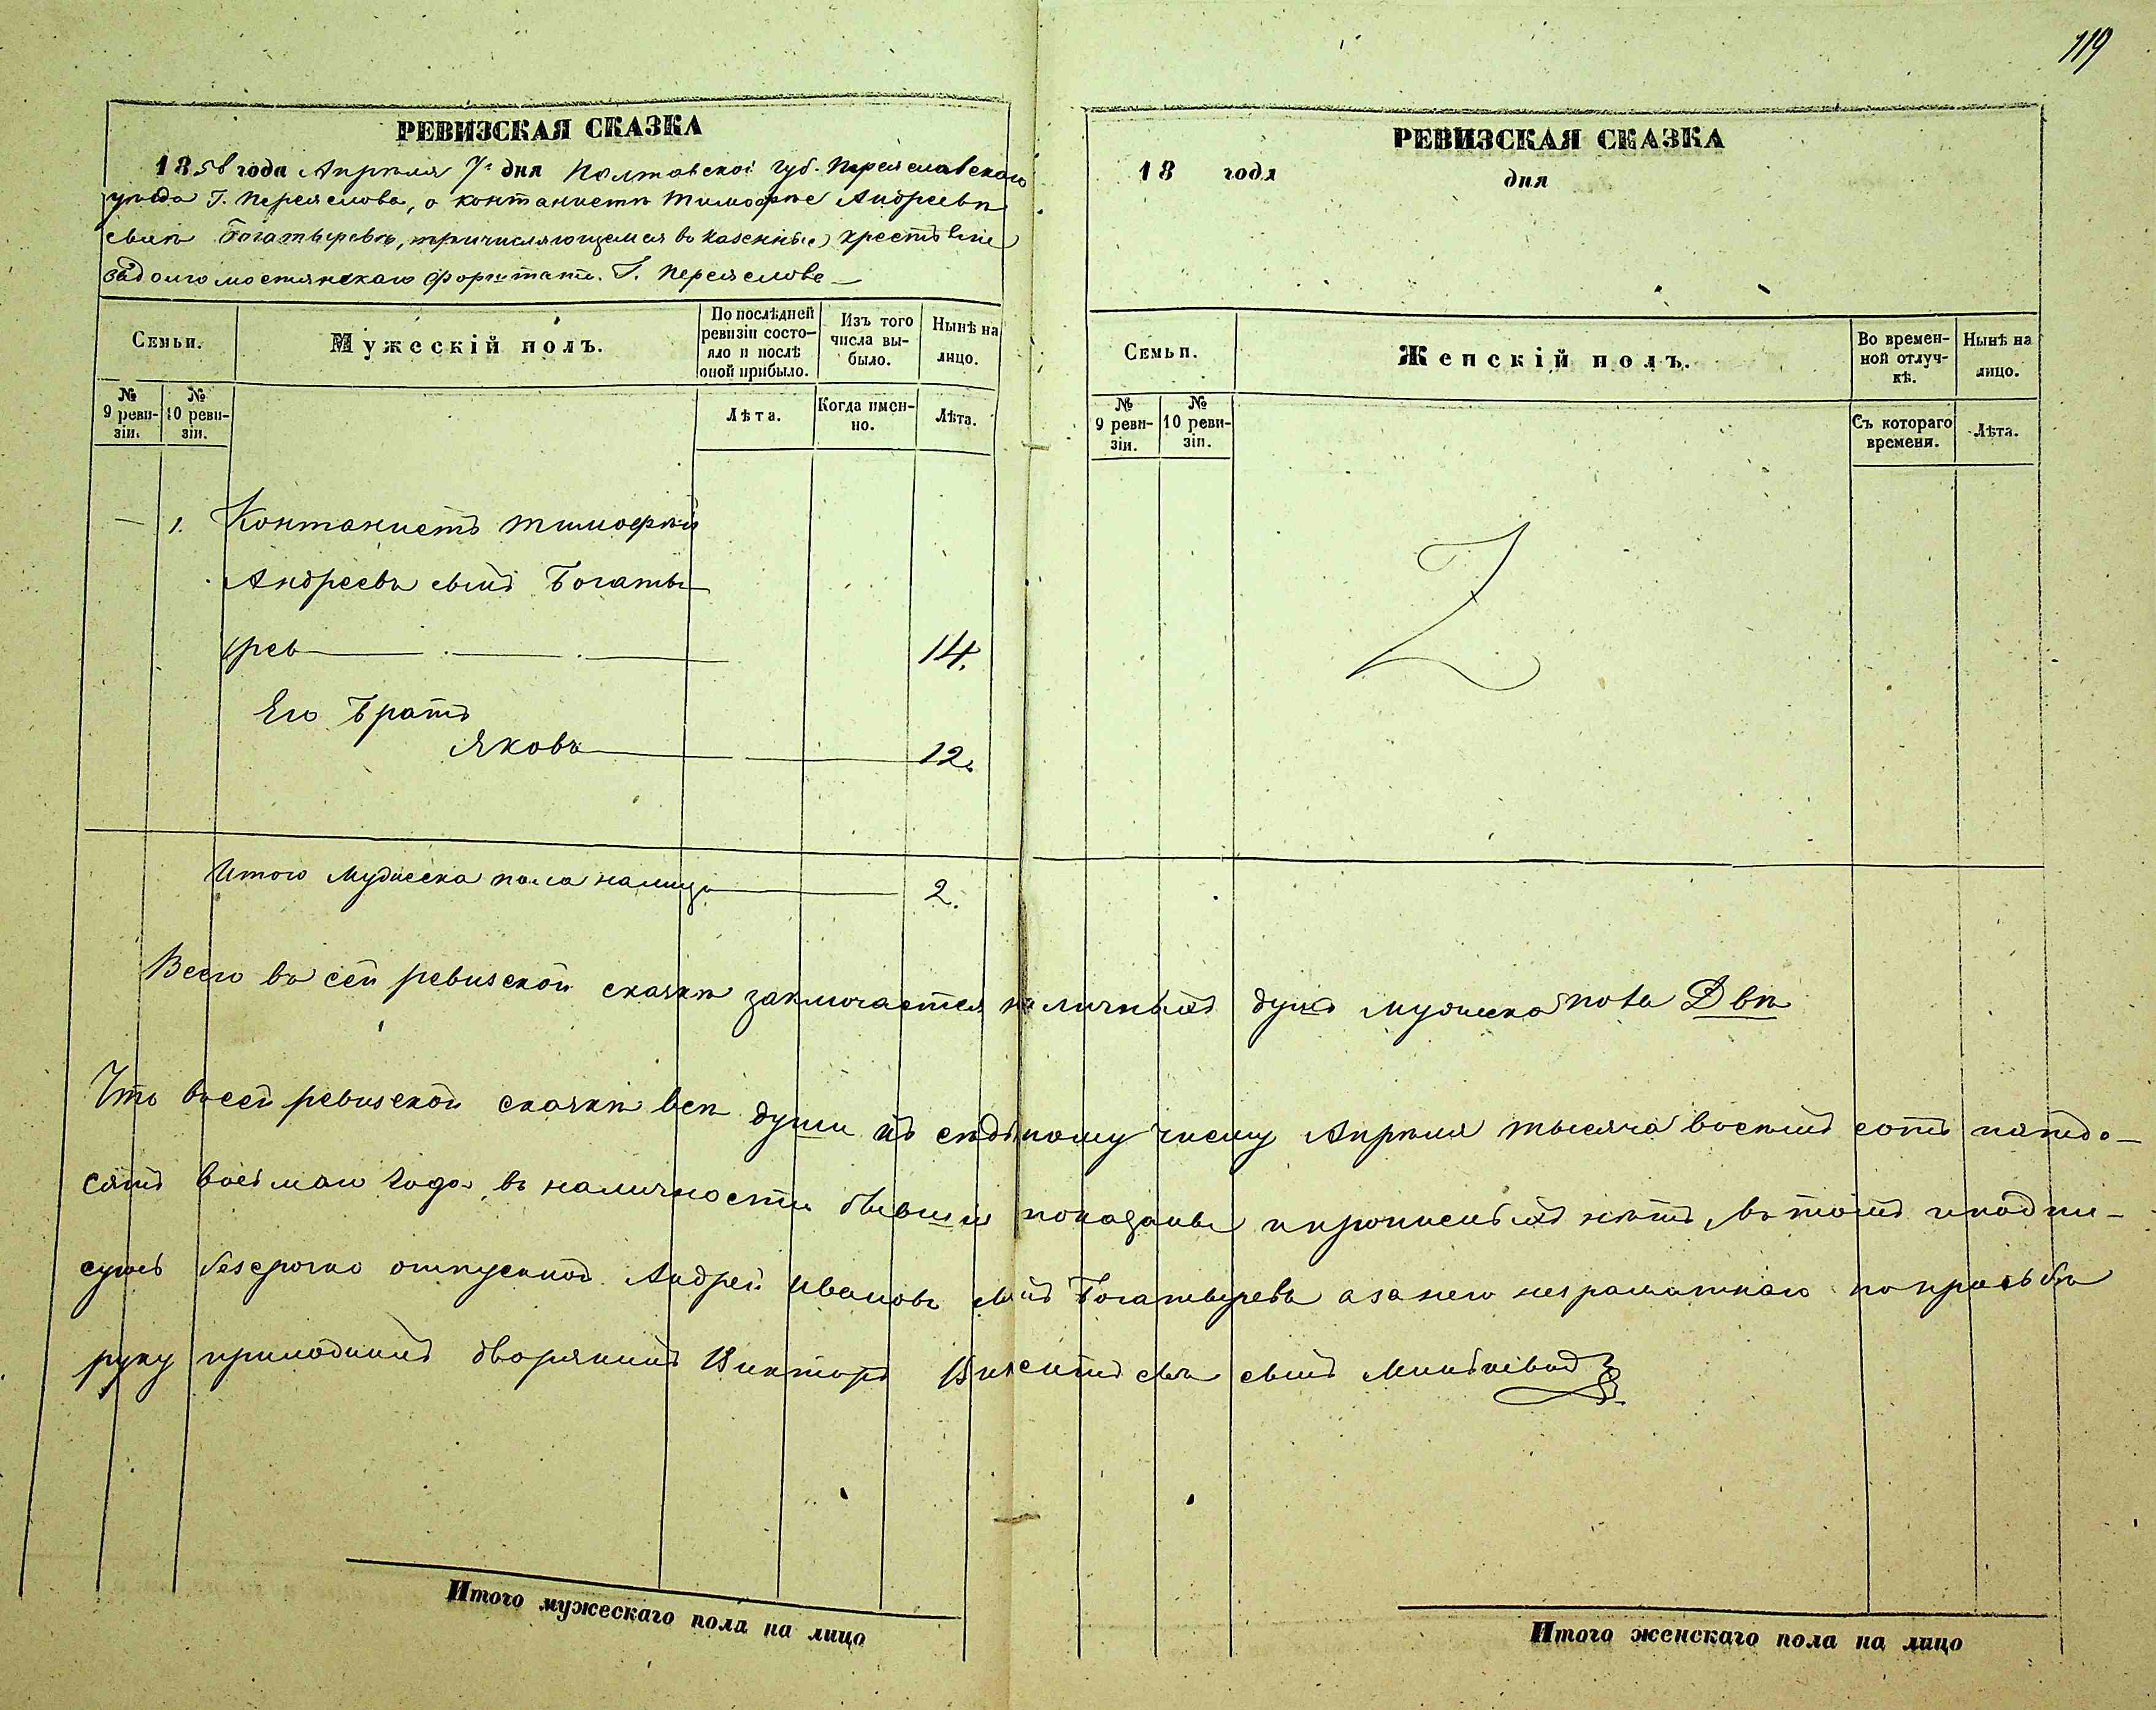 119
РЕВИЗСКАЯ СКАЗКА
1858 года Апрѣля 7 дня Полтавской Губ. Переяславскаго
уѣзда Г. Переяслова, о контанистѣ Тимофѣе Андреевѣ
сынѣ Богатыревѣ, причисляющемся въ Казенные крестьяне
Г. Переяслове
Семьи.
Мужескій полъ.
По послѣдней ревизіи состо-яло и послѣ оной прибыло.
Изъ того числа вы-было.
Нынѣ на лицо.
№ 9 реви-зіи.
№ 10 реви-зіи.
Лѣта.
Когда имен-но.
Лѣта.
— 1. Контанистъ Тимофѣй
Андреевъ сынъ Богаты-
рев 14.
Его Братъ
Яковъ 12.
Итого Мужеска пола налицо 2.
РЕВИЗСКАЯ СКАЗКА
18 года дня
Семьи.
Женскій полъ.
Во времен-ной отлуч-кѣ.
Нынѣ на лицо.
№ 9 реви-зіи.
№ 10 реви-зіи.
Съ котораго времени.
Лѣта.
Всего въ сей ревизской сказкѣ заключается наличныхъ душъ мужеска пола Двѣ
Что въ сей ревизской сказкѣ всѣ души къ седьмому числу Апрѣля тысяча восемь сотъ пятьде-
сятъ восьмаго года въ наличности бывшія показаны и прописныхъ нѣтъ, въ томъ и подпи-
суюсь безсрочно отпускной Андрей Ивановъ сынъ Богатыревъ а за него неграматнаго по прозьбѣ
руку приложилъ дворянинъ Викторъ сынъ
Итого мужескаго пола на лицо
Итого женскаго пола на лицо